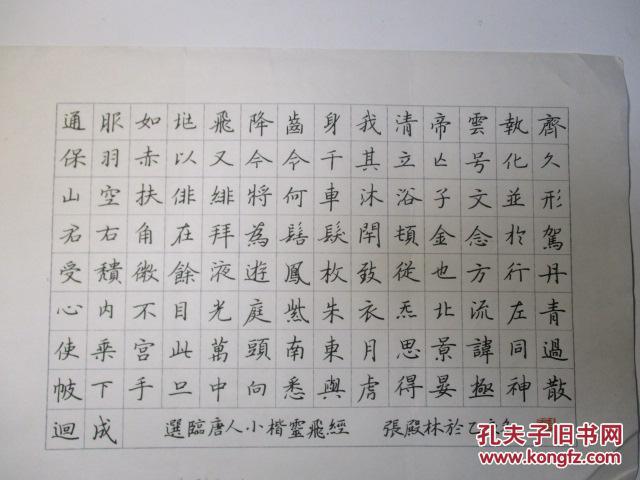 通服如地飛降齒身我清帝雲執齊
保羽赤以又今令千其立亡号化久
山空扶俳緋將何車沐浴子文並形
君右角在拜為髻髮閉頓金念於駕
受積徹餘液遊鳳枚致從也方行丹
心內不目光庭紫朱衣炁北流左青
使乘宮此萬頭南東月思景諱同過
帔下手中向悉與虛得晏極神散
迴成 選臨唐人小楷靈飛經 張殿林於乙
孔夫子旧书网
www.kongfz.com